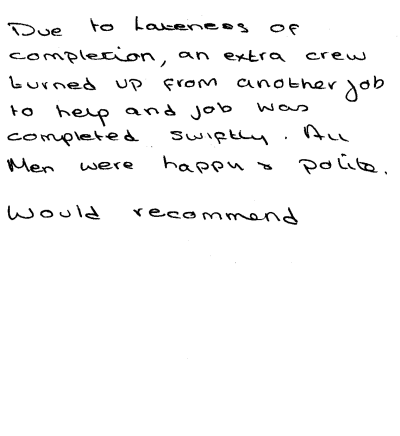 Due to Lateness of
completion, an extra crew
turned up from another job
to help and job was
completed swiftly. All
Men were happy & polite.
Would recommend